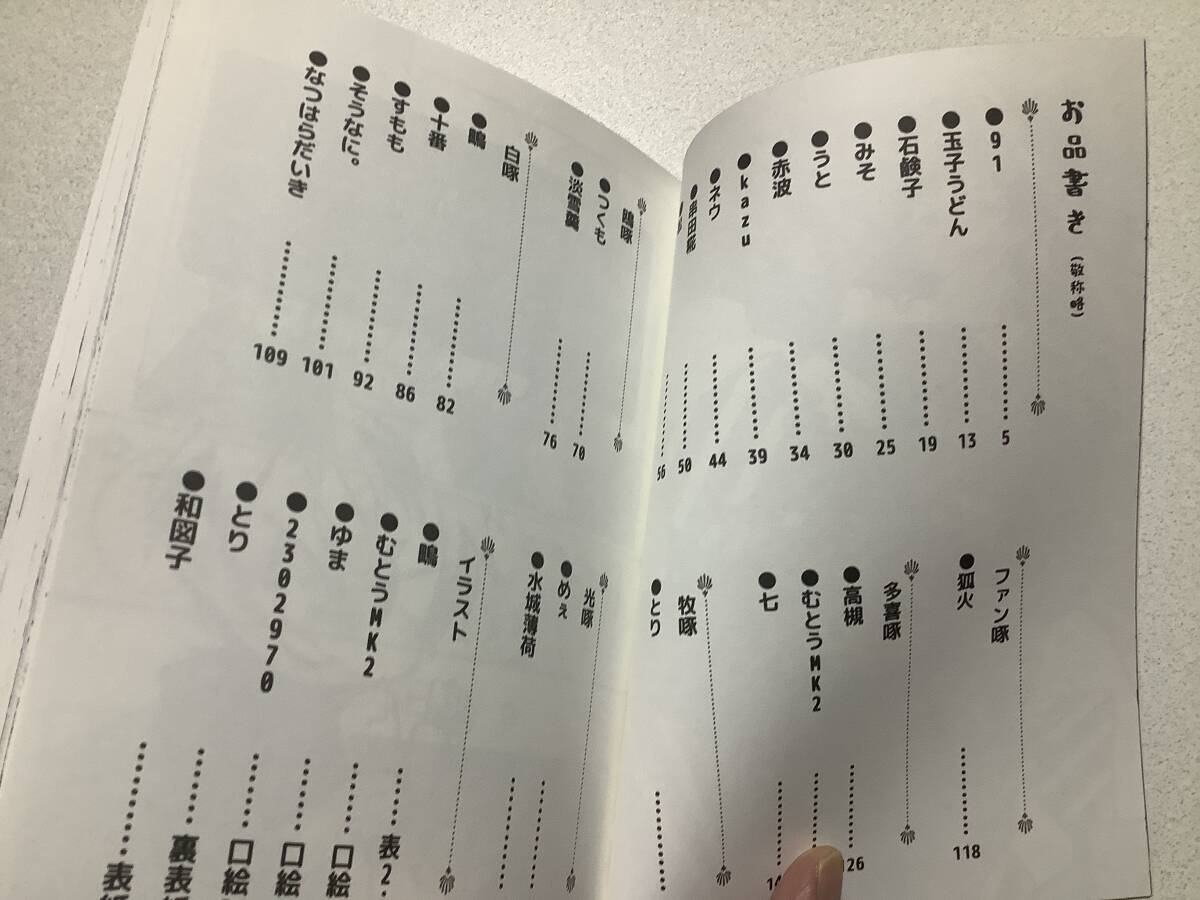 お品書き(敬称略)
●91………5
●玉子うどん………13
●石鹸子………19
●みそ………25
●うと………30
●赤波………34
●kazu………39
●ネウ………44
………50
………56
ファン啄
●狐火………118
多喜啄
●高槻………126
●むとうMK2………
●七………
牧啄
●とり………
鳴啄
●つくも………70
●淡雪羹………76
白啄
●鳴………82
●十番………86
●すもも………92
●そうなに。………101
●なつはらだいき………109
光啄
●めぇ………
●水城薄荷………
イラスト
●鳴………表2・
●むとうMK2………口絵
●ゆま………口絵
●2302970………口絵
●とり………裏表
●和図子………表